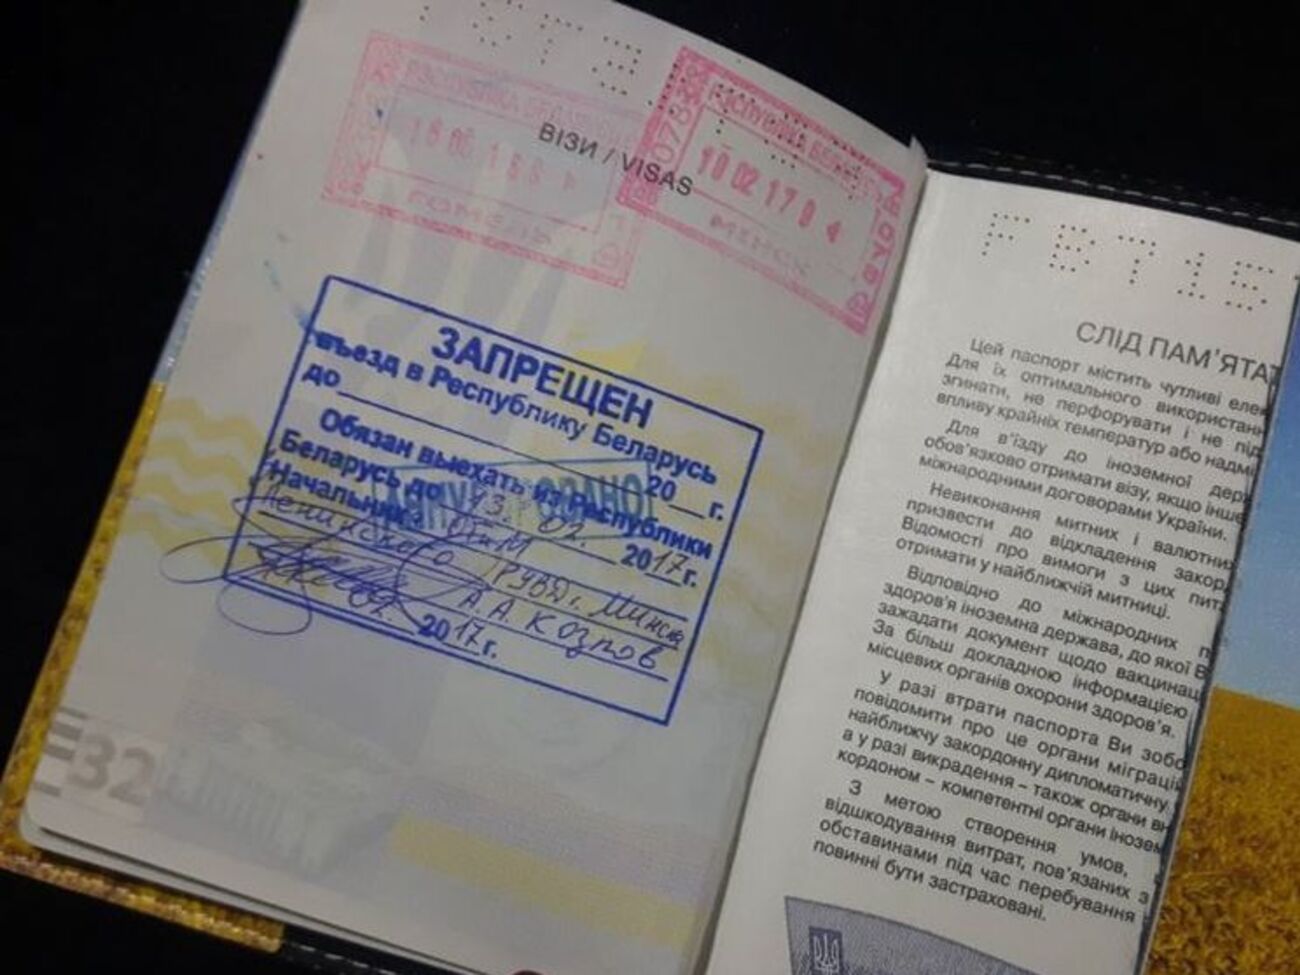 РЭСПУБЛІКА БЕЛАРУСЬ
ВІЗИ / VISAS
10 02 17 0 4
МІНСК
ЗАПРЕЩЕН
въезд в Республику Беларусь
до 20 г.
Обязан выехать из Республики
Беларусь до 13. 02. 2017 г.
Начальника ОГиМ
Ленинского РУВД г. Минска
А. А. Козлов
02. 2017 г.
32
СЛІД ПАМ'ЯТАТ
Цей паспорт містить чутливі елек
Для їх оптимального використанн
згинати, не перфорувати і не під
впливу крайніх температур або надмі
Для в'їзду до іноземної держ
обов'язково отримати візу, якщо інше
міжнародними договорами України.
Невиконання митних і валютних
призвести до відкладення закор
Відомості про вимоги з цих пит
отримати у найближчій митниці.
Відповідно до міжнародних п
здоров'я іноземна держава, до якої В
зажадати документ щодо вакцинац
За більш докладною інформацією
місцевих органів охорони здоров'я.
У разі втрати паспорта Ви зобо
повідомити про це органи міграці
найближчу закордонну дипломатичну
а у разі викрадення – також органи вн
кордоном – компетентні органи інозем
З метою створення умов,
відшкодування витрат, пов'язаних з
обставинами під час перебування
повинні бути застраховані.